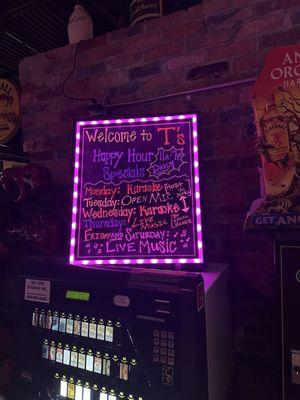 Welcome to T's
Happy Hour 11A-7P
Specials Daily
Monday: Karaoke
Tuesday: OPEN MIC
Wednesday: Karaoke
Thursday: LIVE MUSIC
FRIDAY AND SATURDAY:
LIVE MUSIC
ALE
AN
ORG
GET AN
INTERNATIONAL